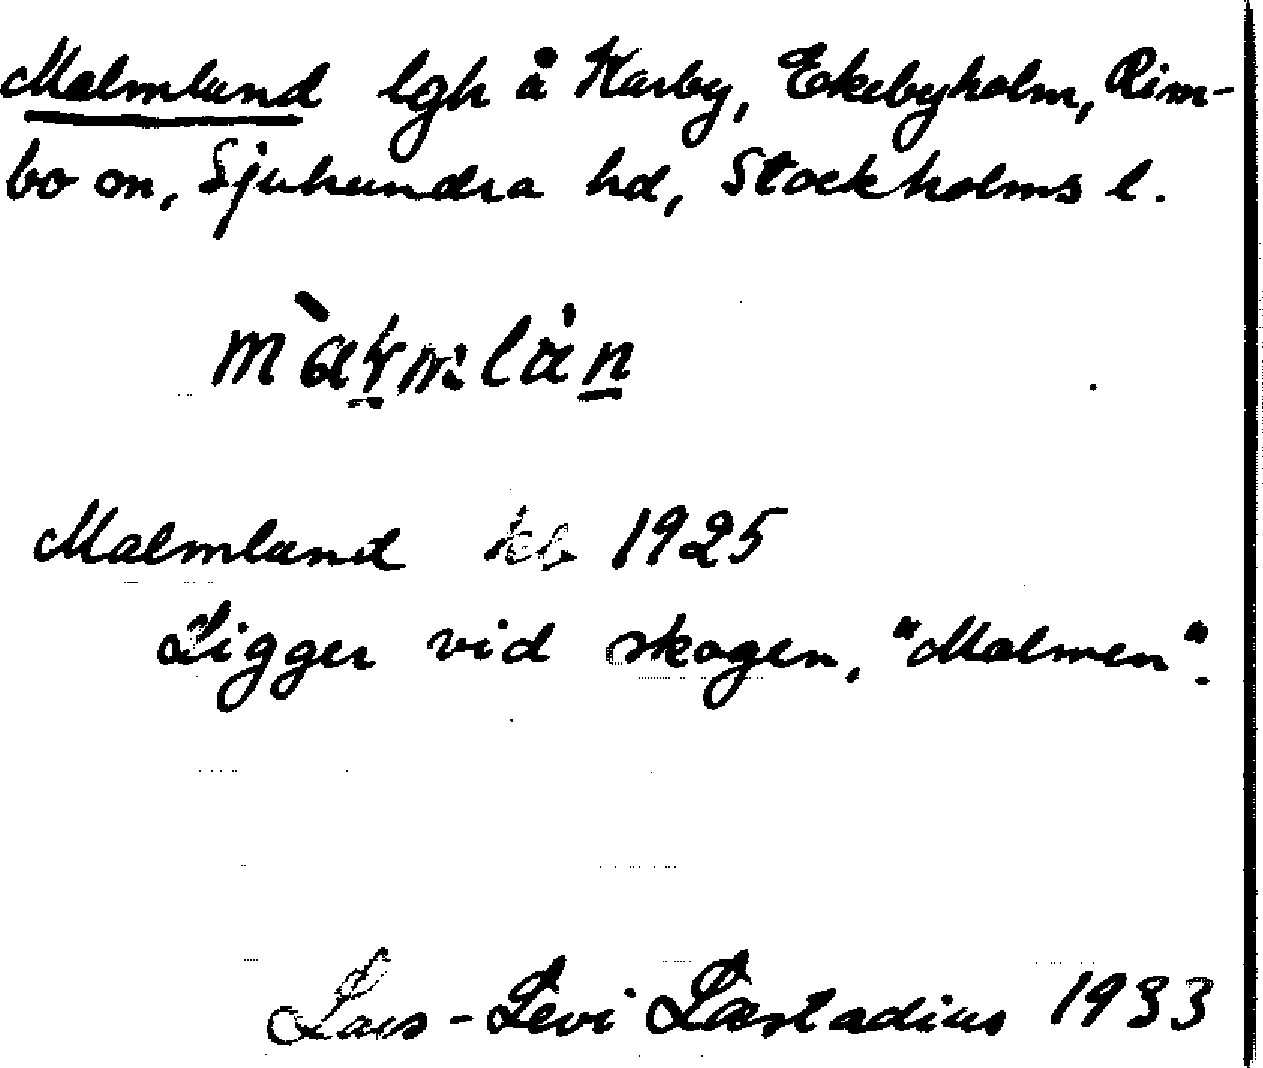 Malmlund lgh å Karby, Ekebyholm, Rim-
bo sn, Sjuhundra hd, Stockholms l.
Malmlund kb 1925
Ligger vid skogen, "Malmen".
Lars-Levi Læstadius 1933